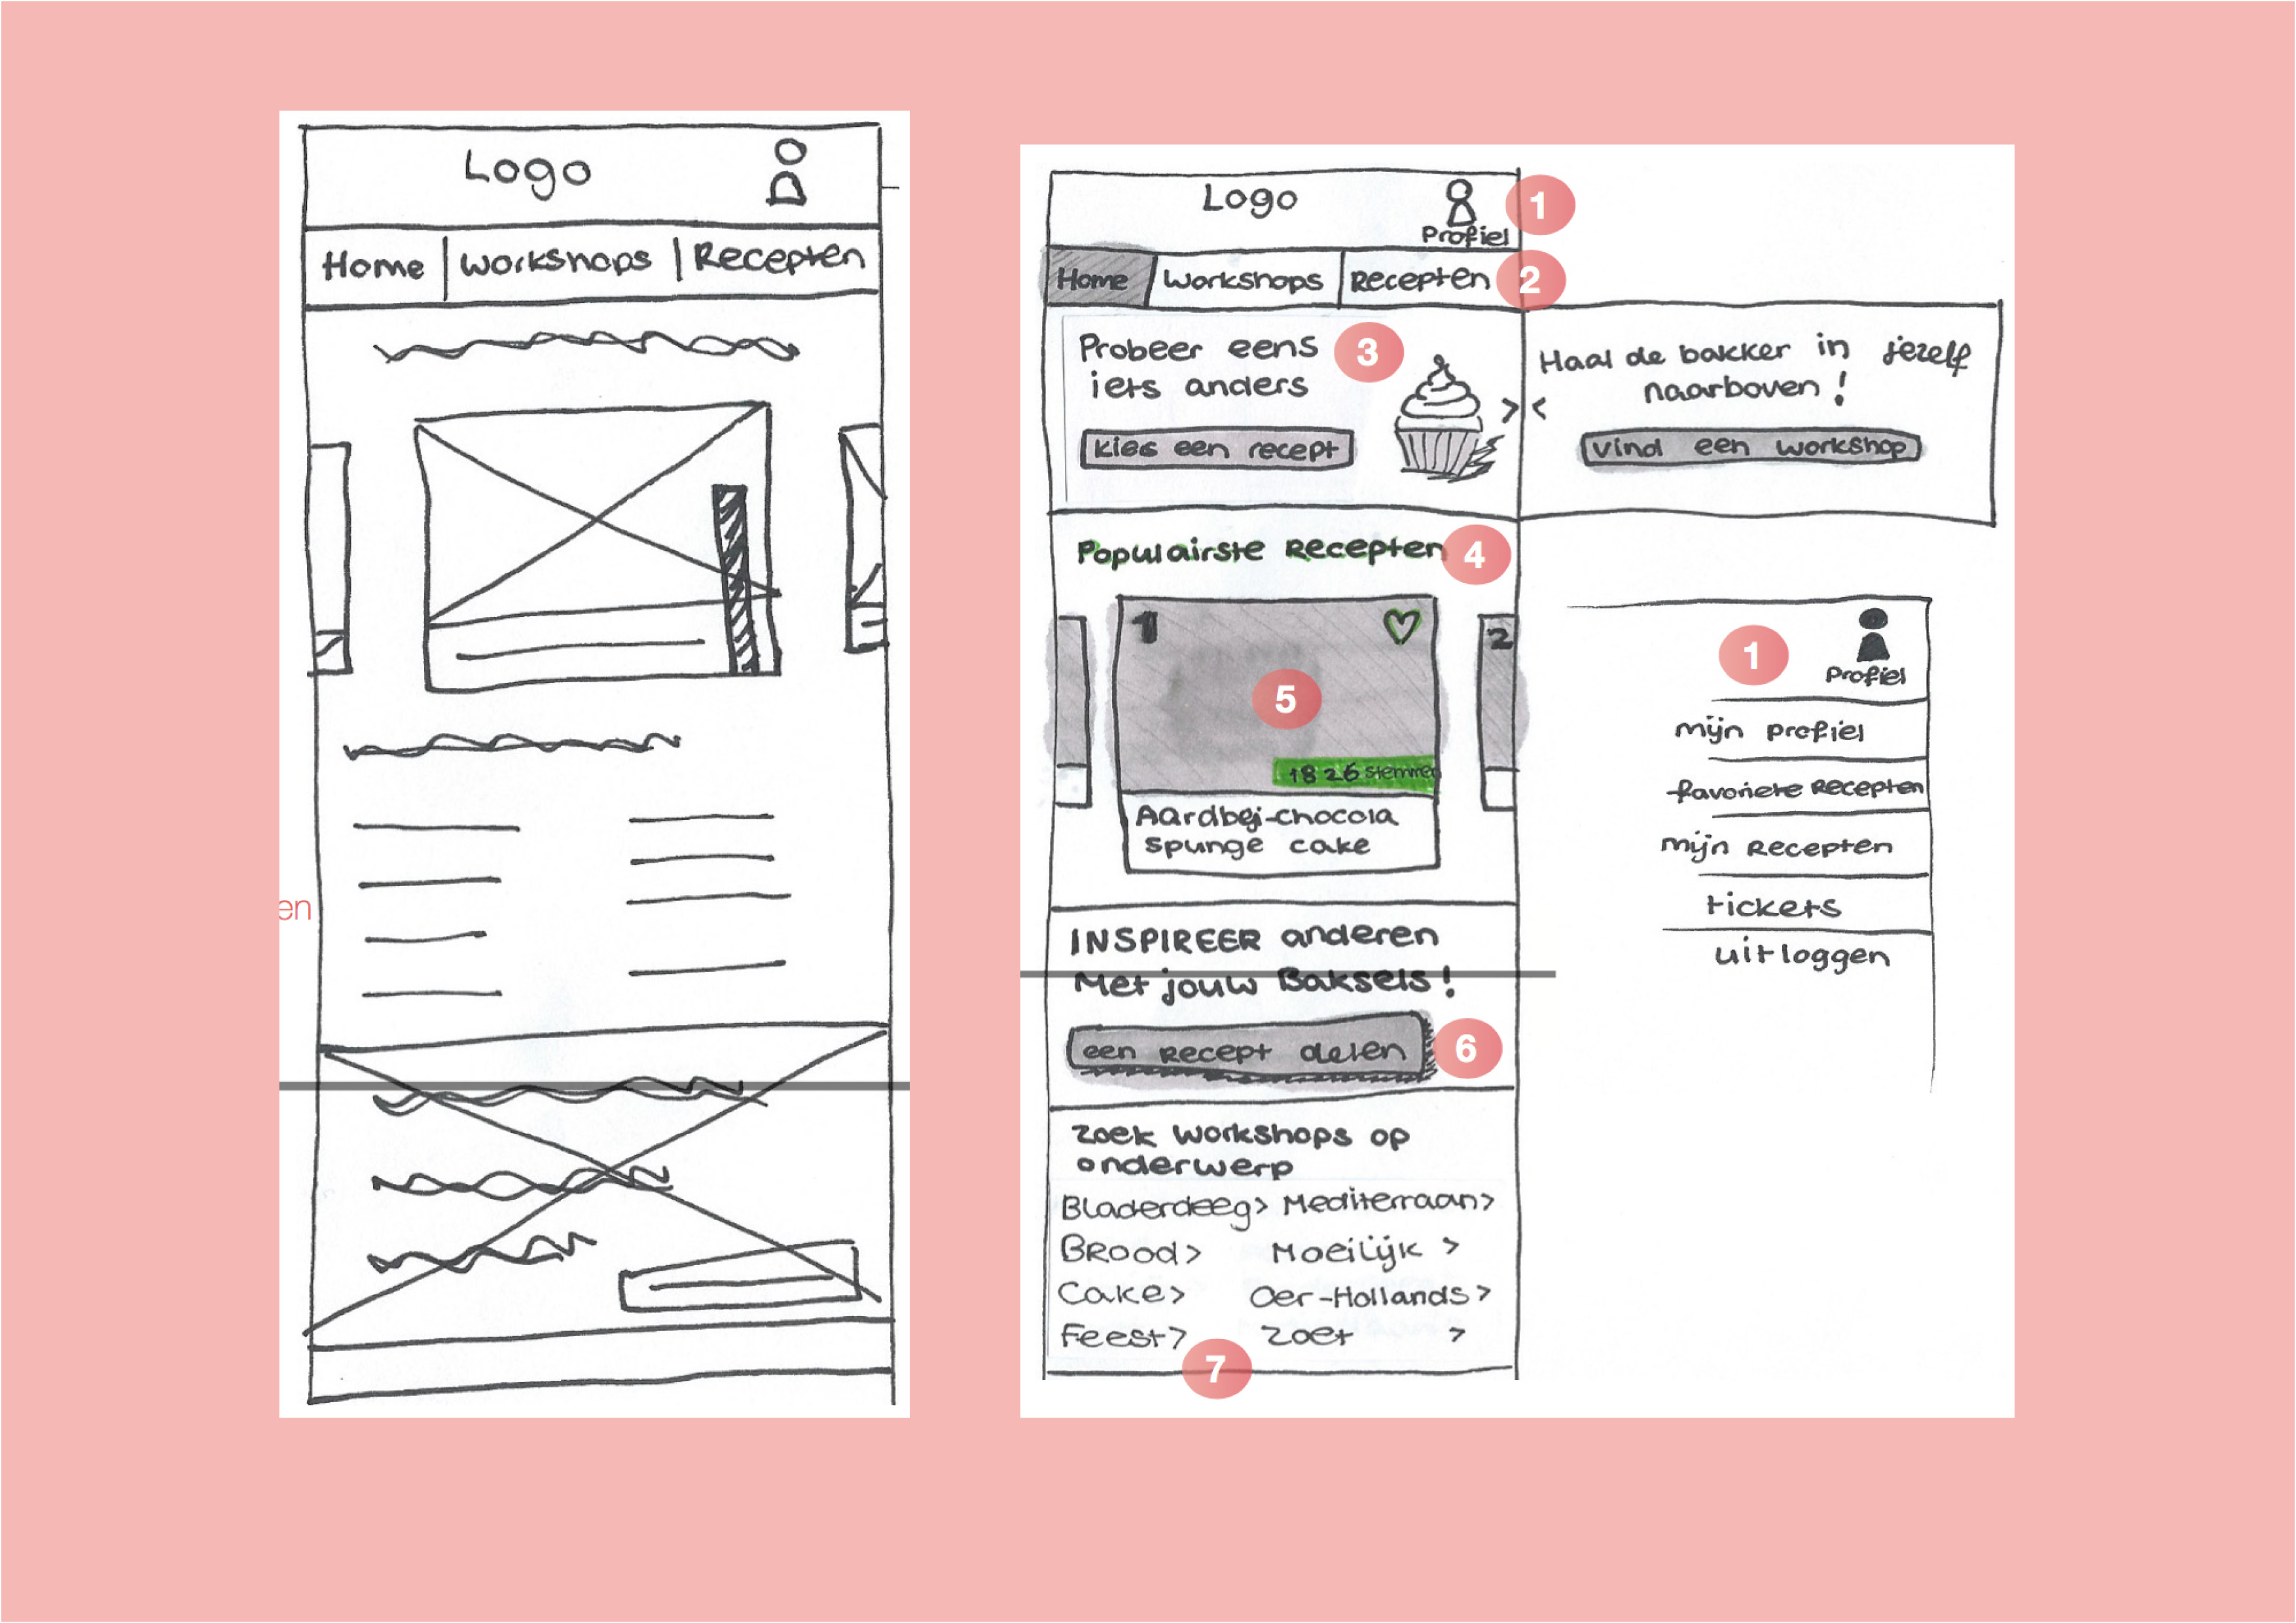 Logo
Home
Workshops
Recepten
en
Logo
1
Profiel
Home
Workshops
Recepten
2
Probeer eens
iets anders
3
kies een recept
>
<
Haal de bakker in jezelf
naarboven!
Vind een workshop
Populairste Recepten
4
1
2
5
1826 stemmen
Aardbei-chocola
spunge cake
INSPIREER anderen
Met jouw Baksels!
een Recept delen
6
Zoek workshops op
onderwerp
Bladerdeeg> Mediterraan>
Brood> Moeilijk >
Cake> Oer-Hollands>
Feest> Zoet >
7
1
Profiel
mijn profiel
favoriete Recepten
mijn Recepten
tickets
uitloggen